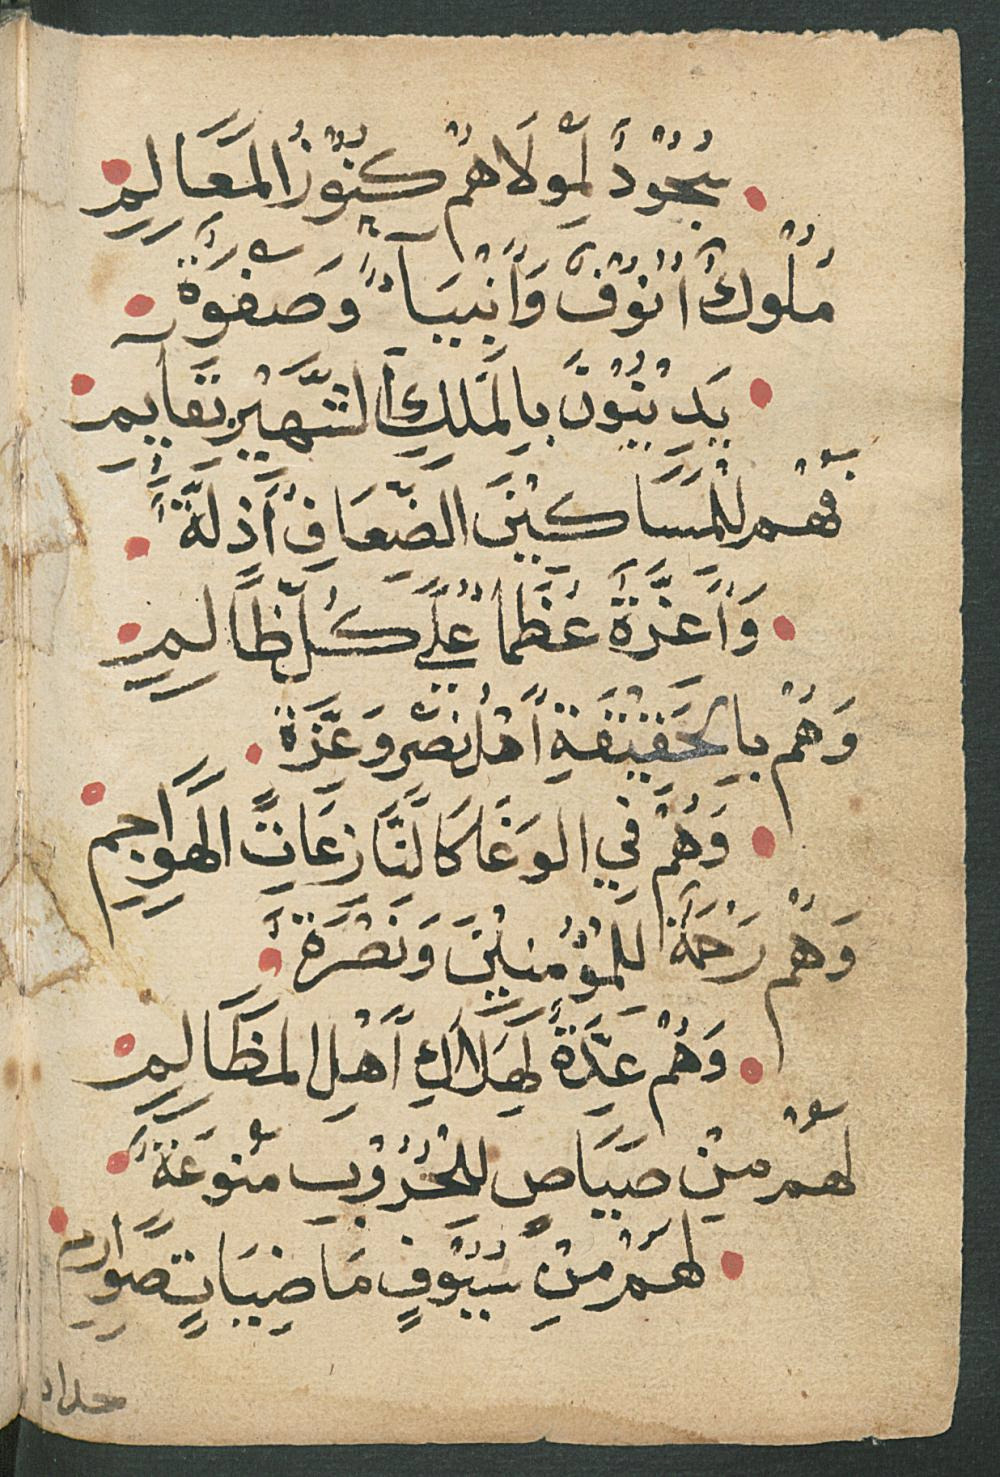 سُجُودٌ لِمَوْلَاهُمْ كُنُوْزُ المَعَالِمِ
مُلُوكٌ أُنُوْفٌ وَأَنْبِيَآءٌ وَصَفْوَةٌ
يَدِيْنُوْنَ بِالمَلِكِ الشَّهِيْرِ تَقَايِمِ
فَهُمْ لِلْمَسَاكِيْنَ الضِّعَافِ أَذِلَّةٌ
وَأَعِزَّةٌ عُظَمَا عَلَى كُلِّ ظَالِمِ
وَهُمْ بِالحَقِيْقَةِ أَهْلُ نَصْرٍ وَعِزَّةٍ
وَهُمْ فِي الوَغَا كَالنَّازِعَاتِ الهَوَاجِمِ
وَهُمْ رَحْمَةٌ لِلْمُؤْمِنِيْنَ وَنَصْرَةٌ
وَهُمْ عِدَّةٌ لِهَلَاكِ أَهْلِ المَظَالِمِ
لَهُمْ مِنْ صَيَاصٍ لِلْحُرُوْبِ مَنُوْعَةٌ
لَهُمْ مِنْ سُيُوْفٍ مَاضِيَاتٍ صَوَارِمِ